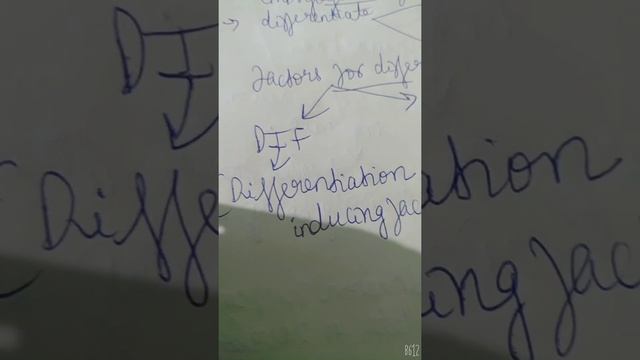 differentiate
factors for differ
DIF
(Differentiation
inducing fac
B612